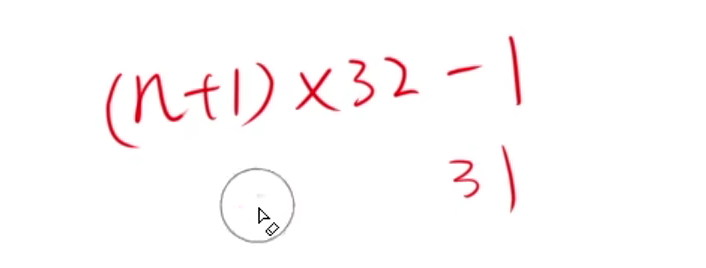 (n+1)×32-1
31